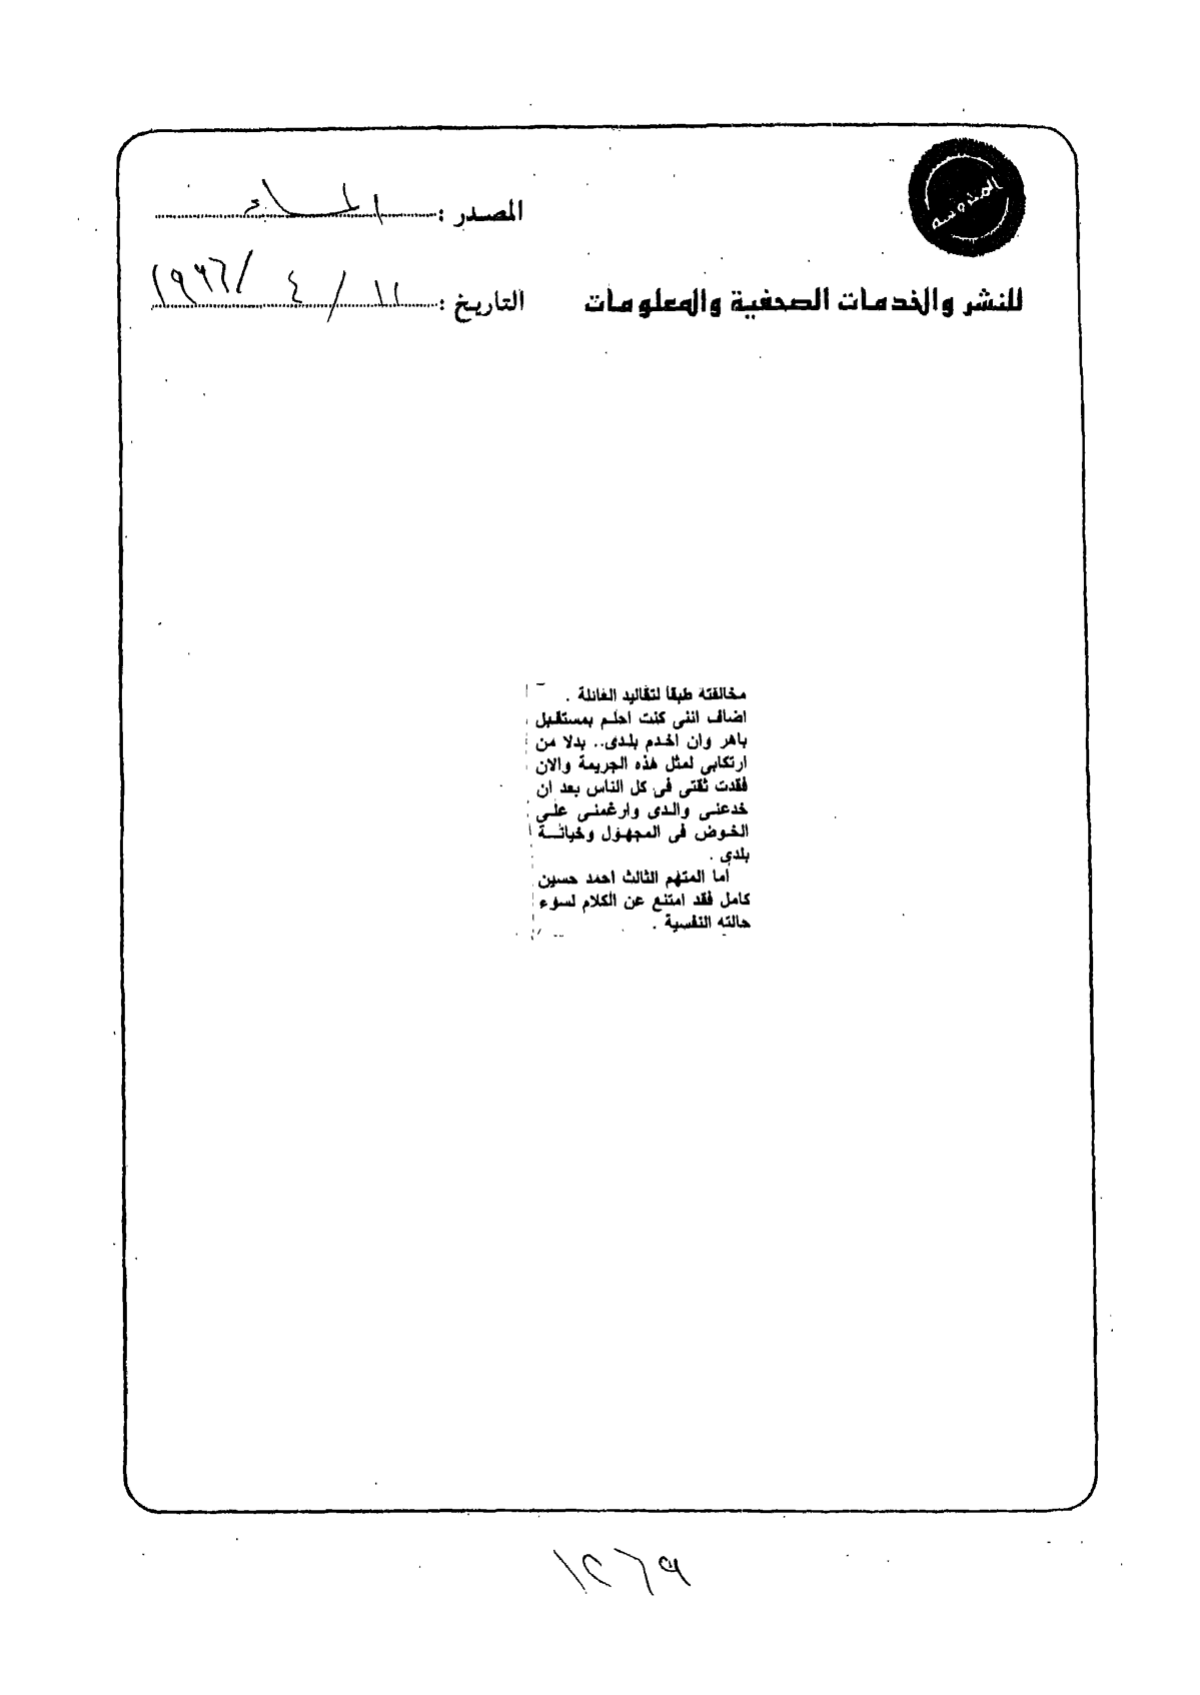 المصدر : المساء
للنشر والخدمات الصحفية والمعلومات
التاريخ : ١١ / ٤ / ١٩٩٦
مخالفته طبقا لتقاليد العائلة .
اضاف اننى كنت احلم بمستقبل
باهر وان اخدم بلدى.. بدلا من
ارتكابى لمثل هذه الجريمة والان
فقدت ثقتى فى كل الناس بعد ان
خدعنى والدى وارغمنى على
الخوض فى المجهول وخيانة
بلدى .
أما المتهم الثالث احمد حسين
كامل فقد امتنع عن الكلام لسوء
حالته النفسية .
١٢٦٩